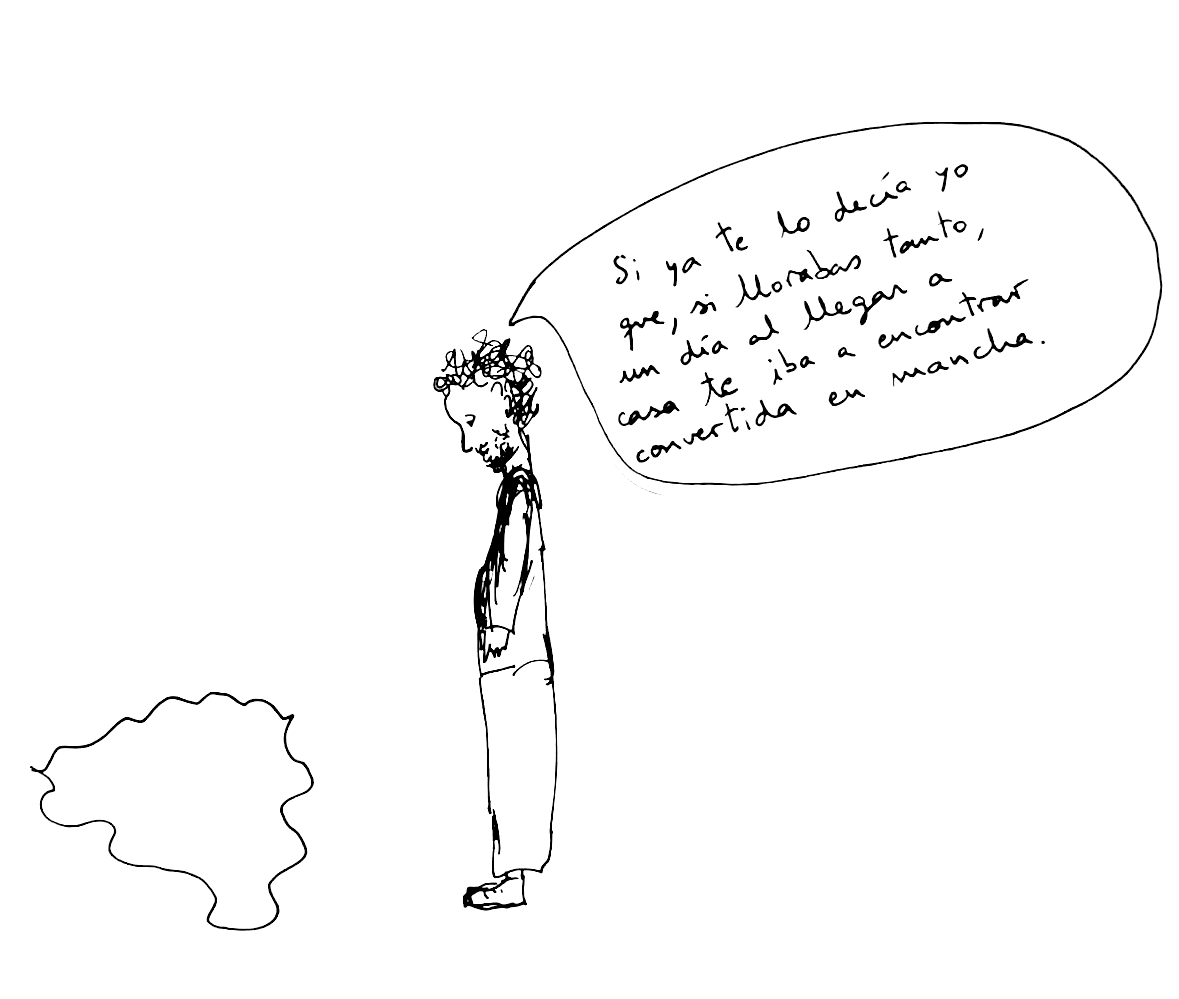 Si ya te lo decía yo
que, si llorabas tanto,
un día al llegar a
casa te iba a encontrar
convertida en mancha.